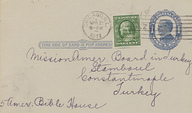 THIS SIDE OF CARD IS FOR ADDRESS
Mission Amer. Board in Turkey
Stamboul
Constantinople
Turkey
Amer. Bible House